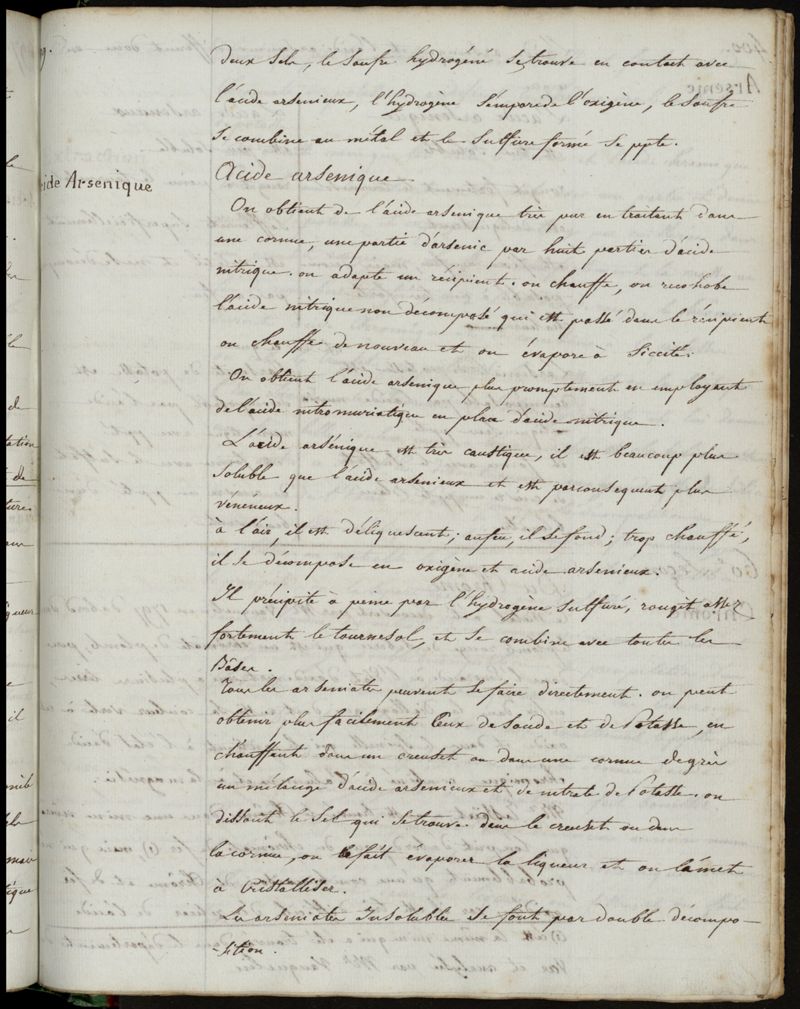 deux sels, le soufre hydrogéné se trouve en contact avec
l'acide arsenieux, l'hydrogène s'empare de l'oxigène, le soufre
se combine au métal et le sulfure formé se ppte.
Acide Arsenique
Acide arsenique
On obtient de l'acide arsenique très pur en traitant dans
une cornue, une partie d'arsenic par huit parties d'acide
nitrique. on adapte un récipient. on chauffe, on recohobe
l'acide nitrique non décomposé qui est passé dans le récipient
on chauffe de nouveau et on évapore à siccité.
On obtient l'acide arsénique plus promptement en employant
de l'acide nitromuriatique en place d'acide nitrique.
L'acide arsénique est très caustique, il est beaucoup plus
soluble que l'acide arsenieux et est parconsequent plus
vénéneux.
à l'air, il est déliquescent; au feu, il se fond; trop chauffé,
il se décompose en oxigène et acide arsenieux.
Il précipite à peine par l'hydrogène sulfuré, rougit assez
fortement le tournesol, et se combine avec toutes les
Bases.
Tous les arseniates peuvent se faire directement. on peut
obtenir plus facilement Ceux de Soude et de Potasse, en
chauffant dans un creuset ou dans une cornue de grès
un mélange d'acide arsenieux et de nitrate de Potasse. on
dissout le Sel qui se trouve dans le creuset ou dans
la cornue, on fait évaporer la liqueur et on la met
à Cristalliser.
Les arseniates Insolubles se font par double décompo-
-sition.